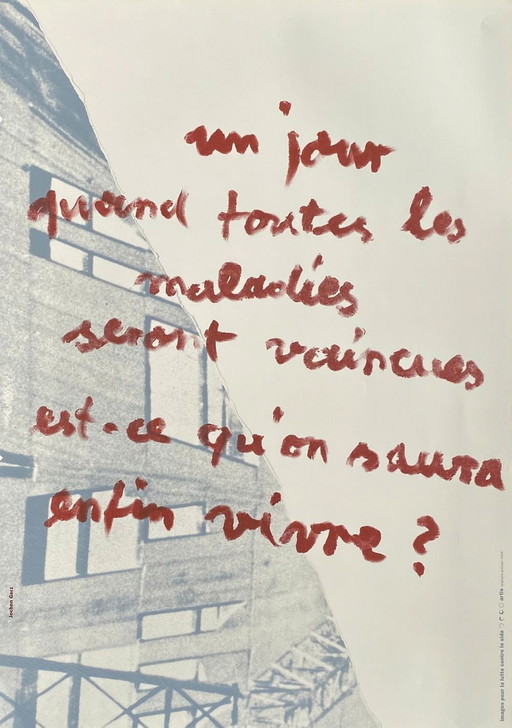 un jour
quand toutes les
maladies
seront vaincues
est-ce qu'on saura
enfin vivre ?
Jochen Gerz
images pour la lutte contre le sida
artis